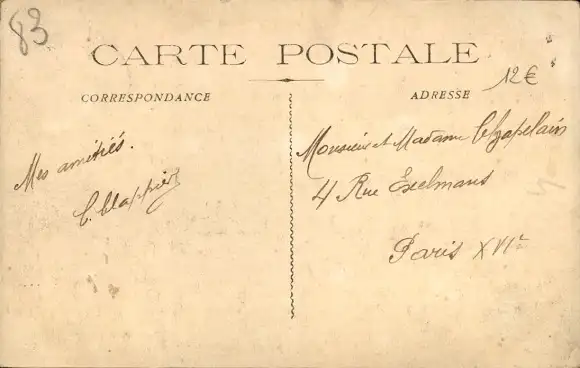 83
CARTE POSTALE
12€
CORRESPONDANCE
ADRESSE
Mes amitiés.
Monsieur et Madame Chapelain
4 Rue Exelmans
Paris XVIe